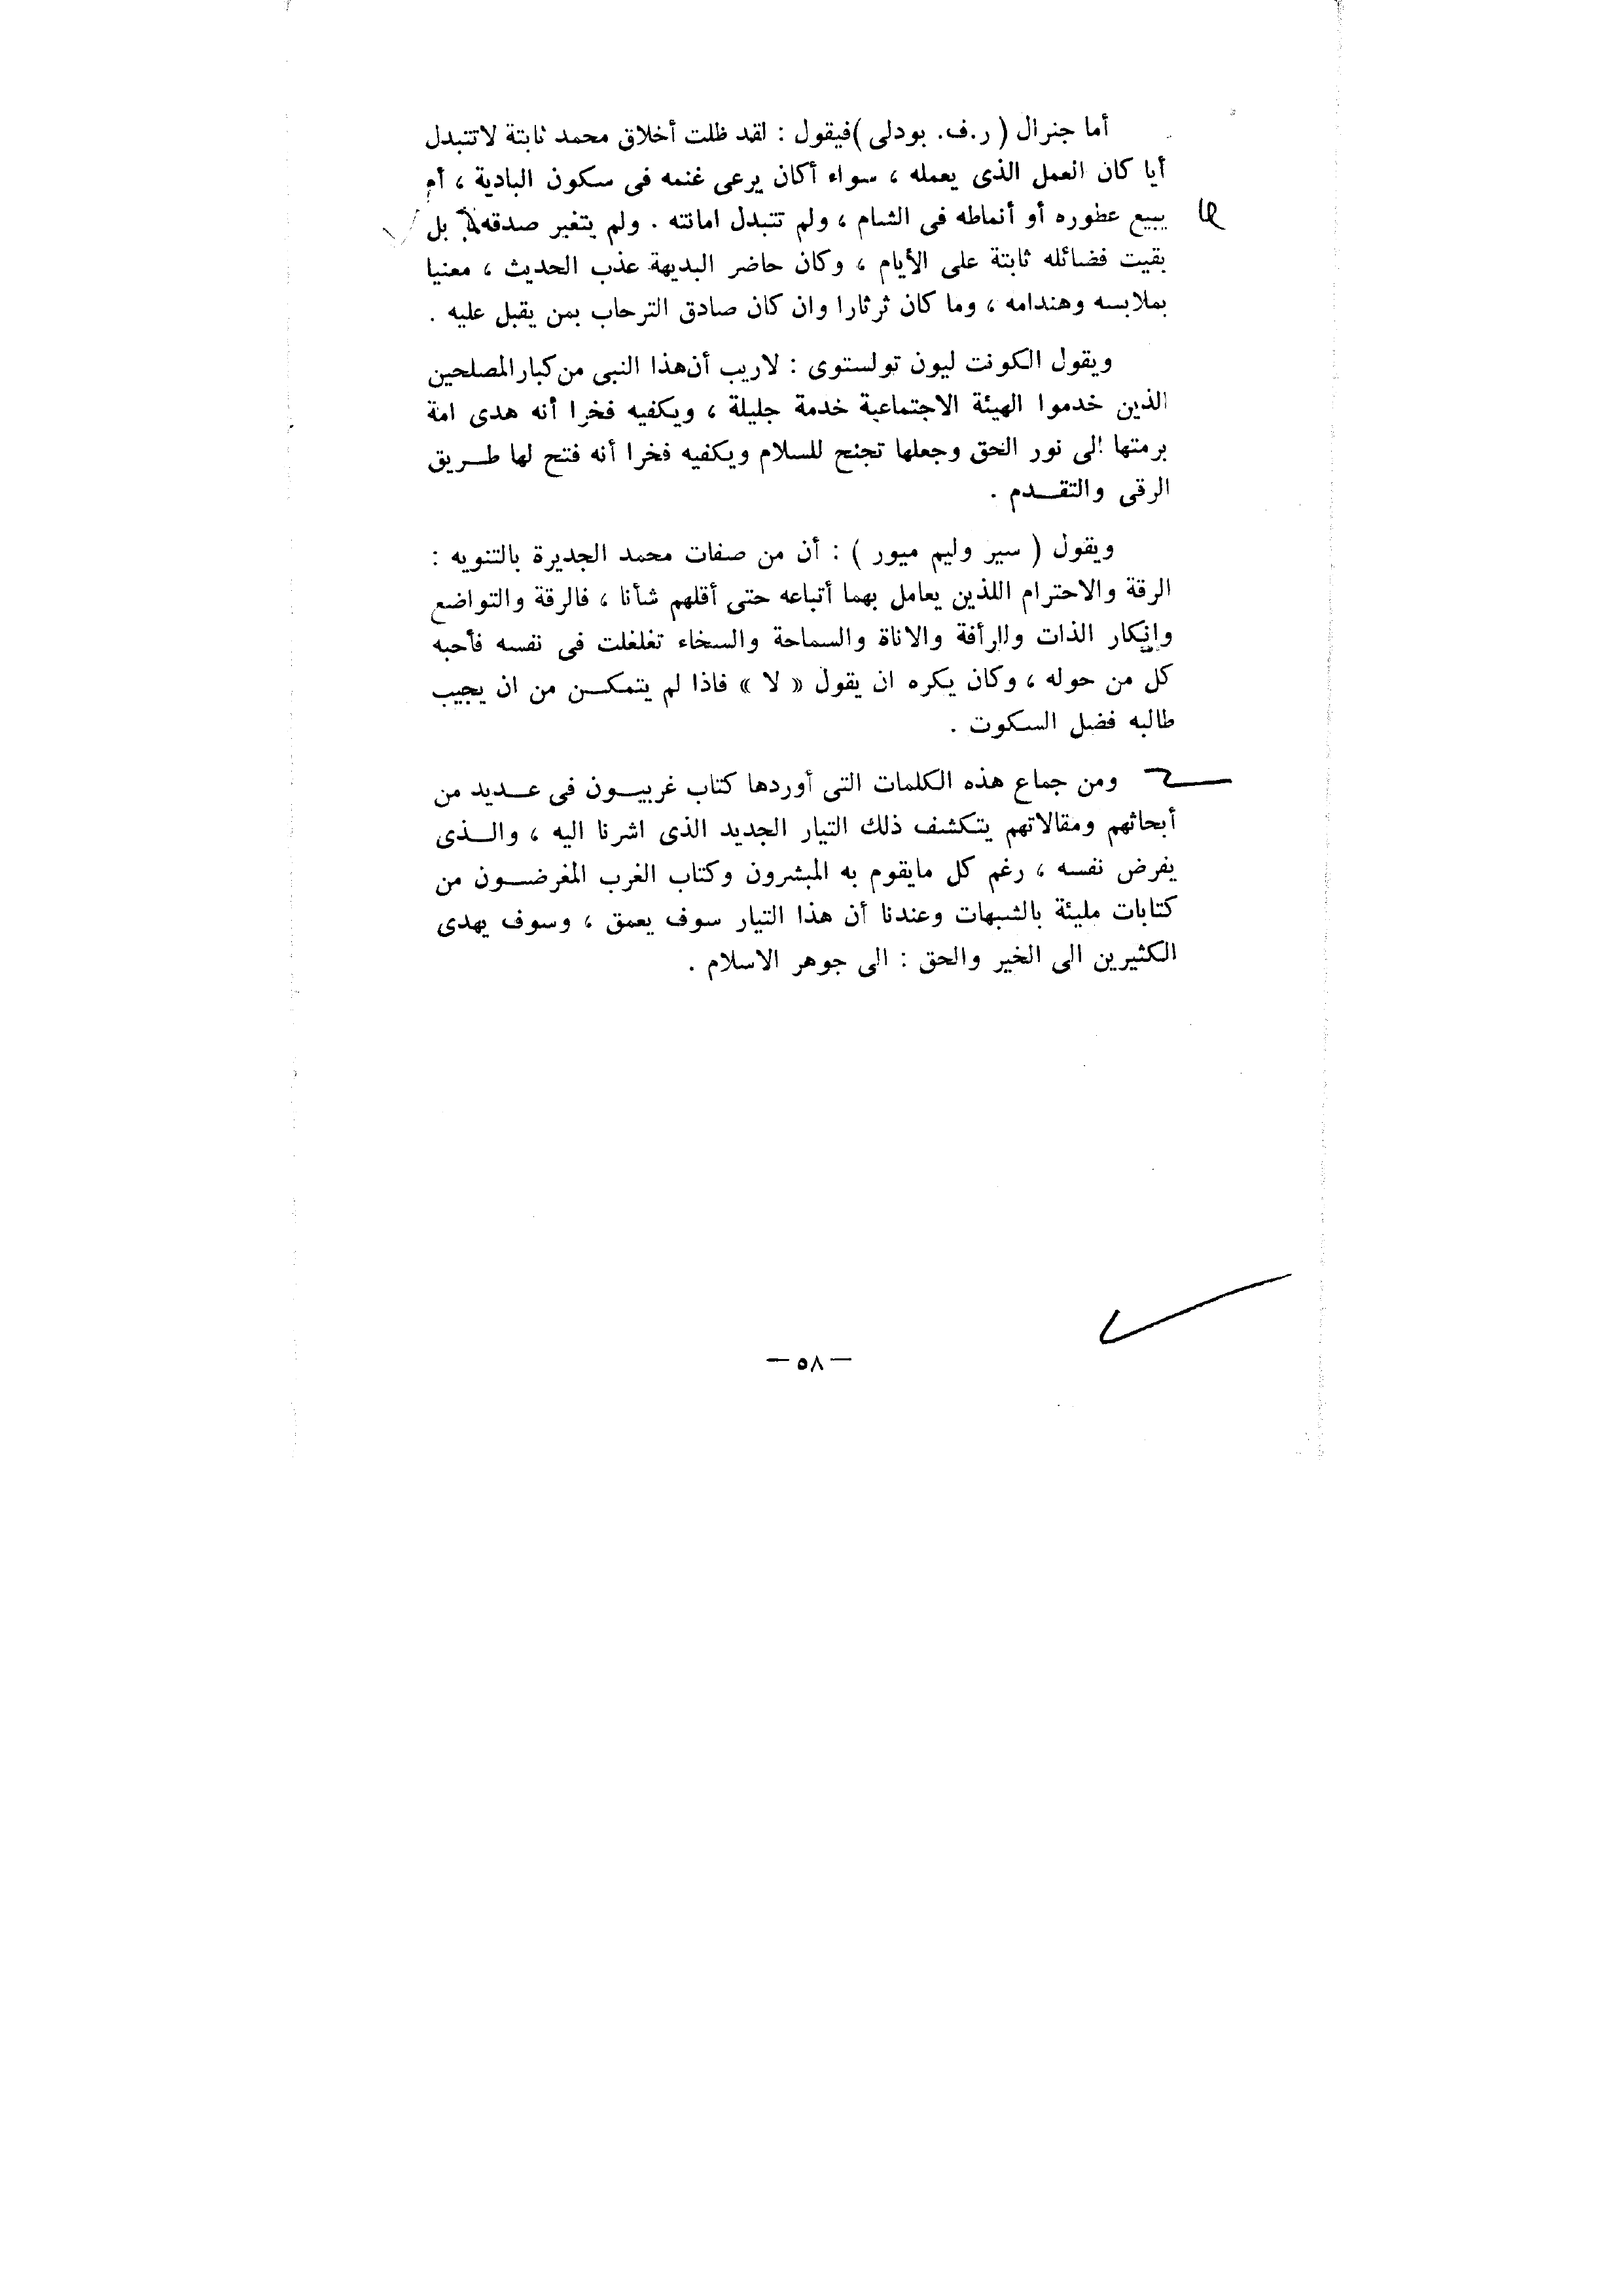 أما جنرال ( ر.ف. بودلى )فيقول : لقد ظلت أخلاق محمد ثابتة لاتتبدل
أيا كان العمل الذى يعمله ، سواء أكان يرعى غنمه فى سكون البادية ، أم
يبيع عطوره أو أنماطه فى الشام ، ولم تتبدل امانته . ولم يتغير صدقه بل
بقيت فضائله ثابتة على الأيام ، وكان حاضر البديهة عذب الحديث ، معنيا
بملابسه وهندامه ، وما كان ثرثارا وان كان صادق الترحاب بمن يقبل عليه .
ويقول الكونت ليون تولستوى : لاريب أن هذا النبى من كبار المصلحين
الذين خدموا الهيئة الاجتماعية خدمة جليلة ، ويكفيه فخرا أنه هدى امة
برمتها الى نور الحق وجعلها تجنح للسلام ويكفيه فخرا أنه فتح لها طـريق
الرقى والتقـدم .
ويقول ( سير وليم ميور ) : أن من صفات محمد الجديرة بالتنويه :
الرقة والاحترام اللذين يعامل بهما أتباعه حتى أقلهم شأنا ، فالرقة والتواضع
وإنكار الذات والرأفة والاناة والسماحة والسخاء تغلغلت فى نفسه فأحبه
كل من حوله ، وكان يكره ان يقول « لا » فاذا لم يتمكـن من ان يجيب
طالبه فضل السكوت .
ومن جماع هذه الكلمات التى أوردها كتاب غربيـون فى عـديد من
أبحاثهم ومقالاتهم يتكشف ذلك التيار الجديد الذى اشرنا اليه ، والـذى
يفرض نفسه ، رغم كل مايقوم به المبشرون وكتاب الغرب المغرضـون من
كتابات مليئة بالشبهات وعندنا أن هذا التيار سوف يعمق ، وسوف يهدى
الكثيرين الى الخير والحق : الى جوهر الاسلام .
— ٥٨ —